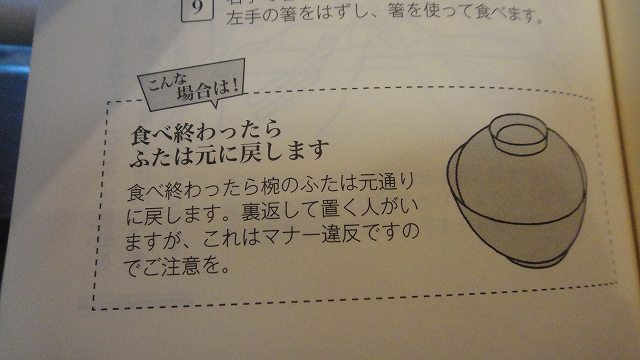 9
左手の箸をはずし、箸を使って食べます。
こんな
場合は!
食べ終わったら
ふたは元に戻します
食べ終わったら椀のふたは元通り
に戻します。裏返して置く人がい
ますが、これはマナー違反ですの
でご注意を。